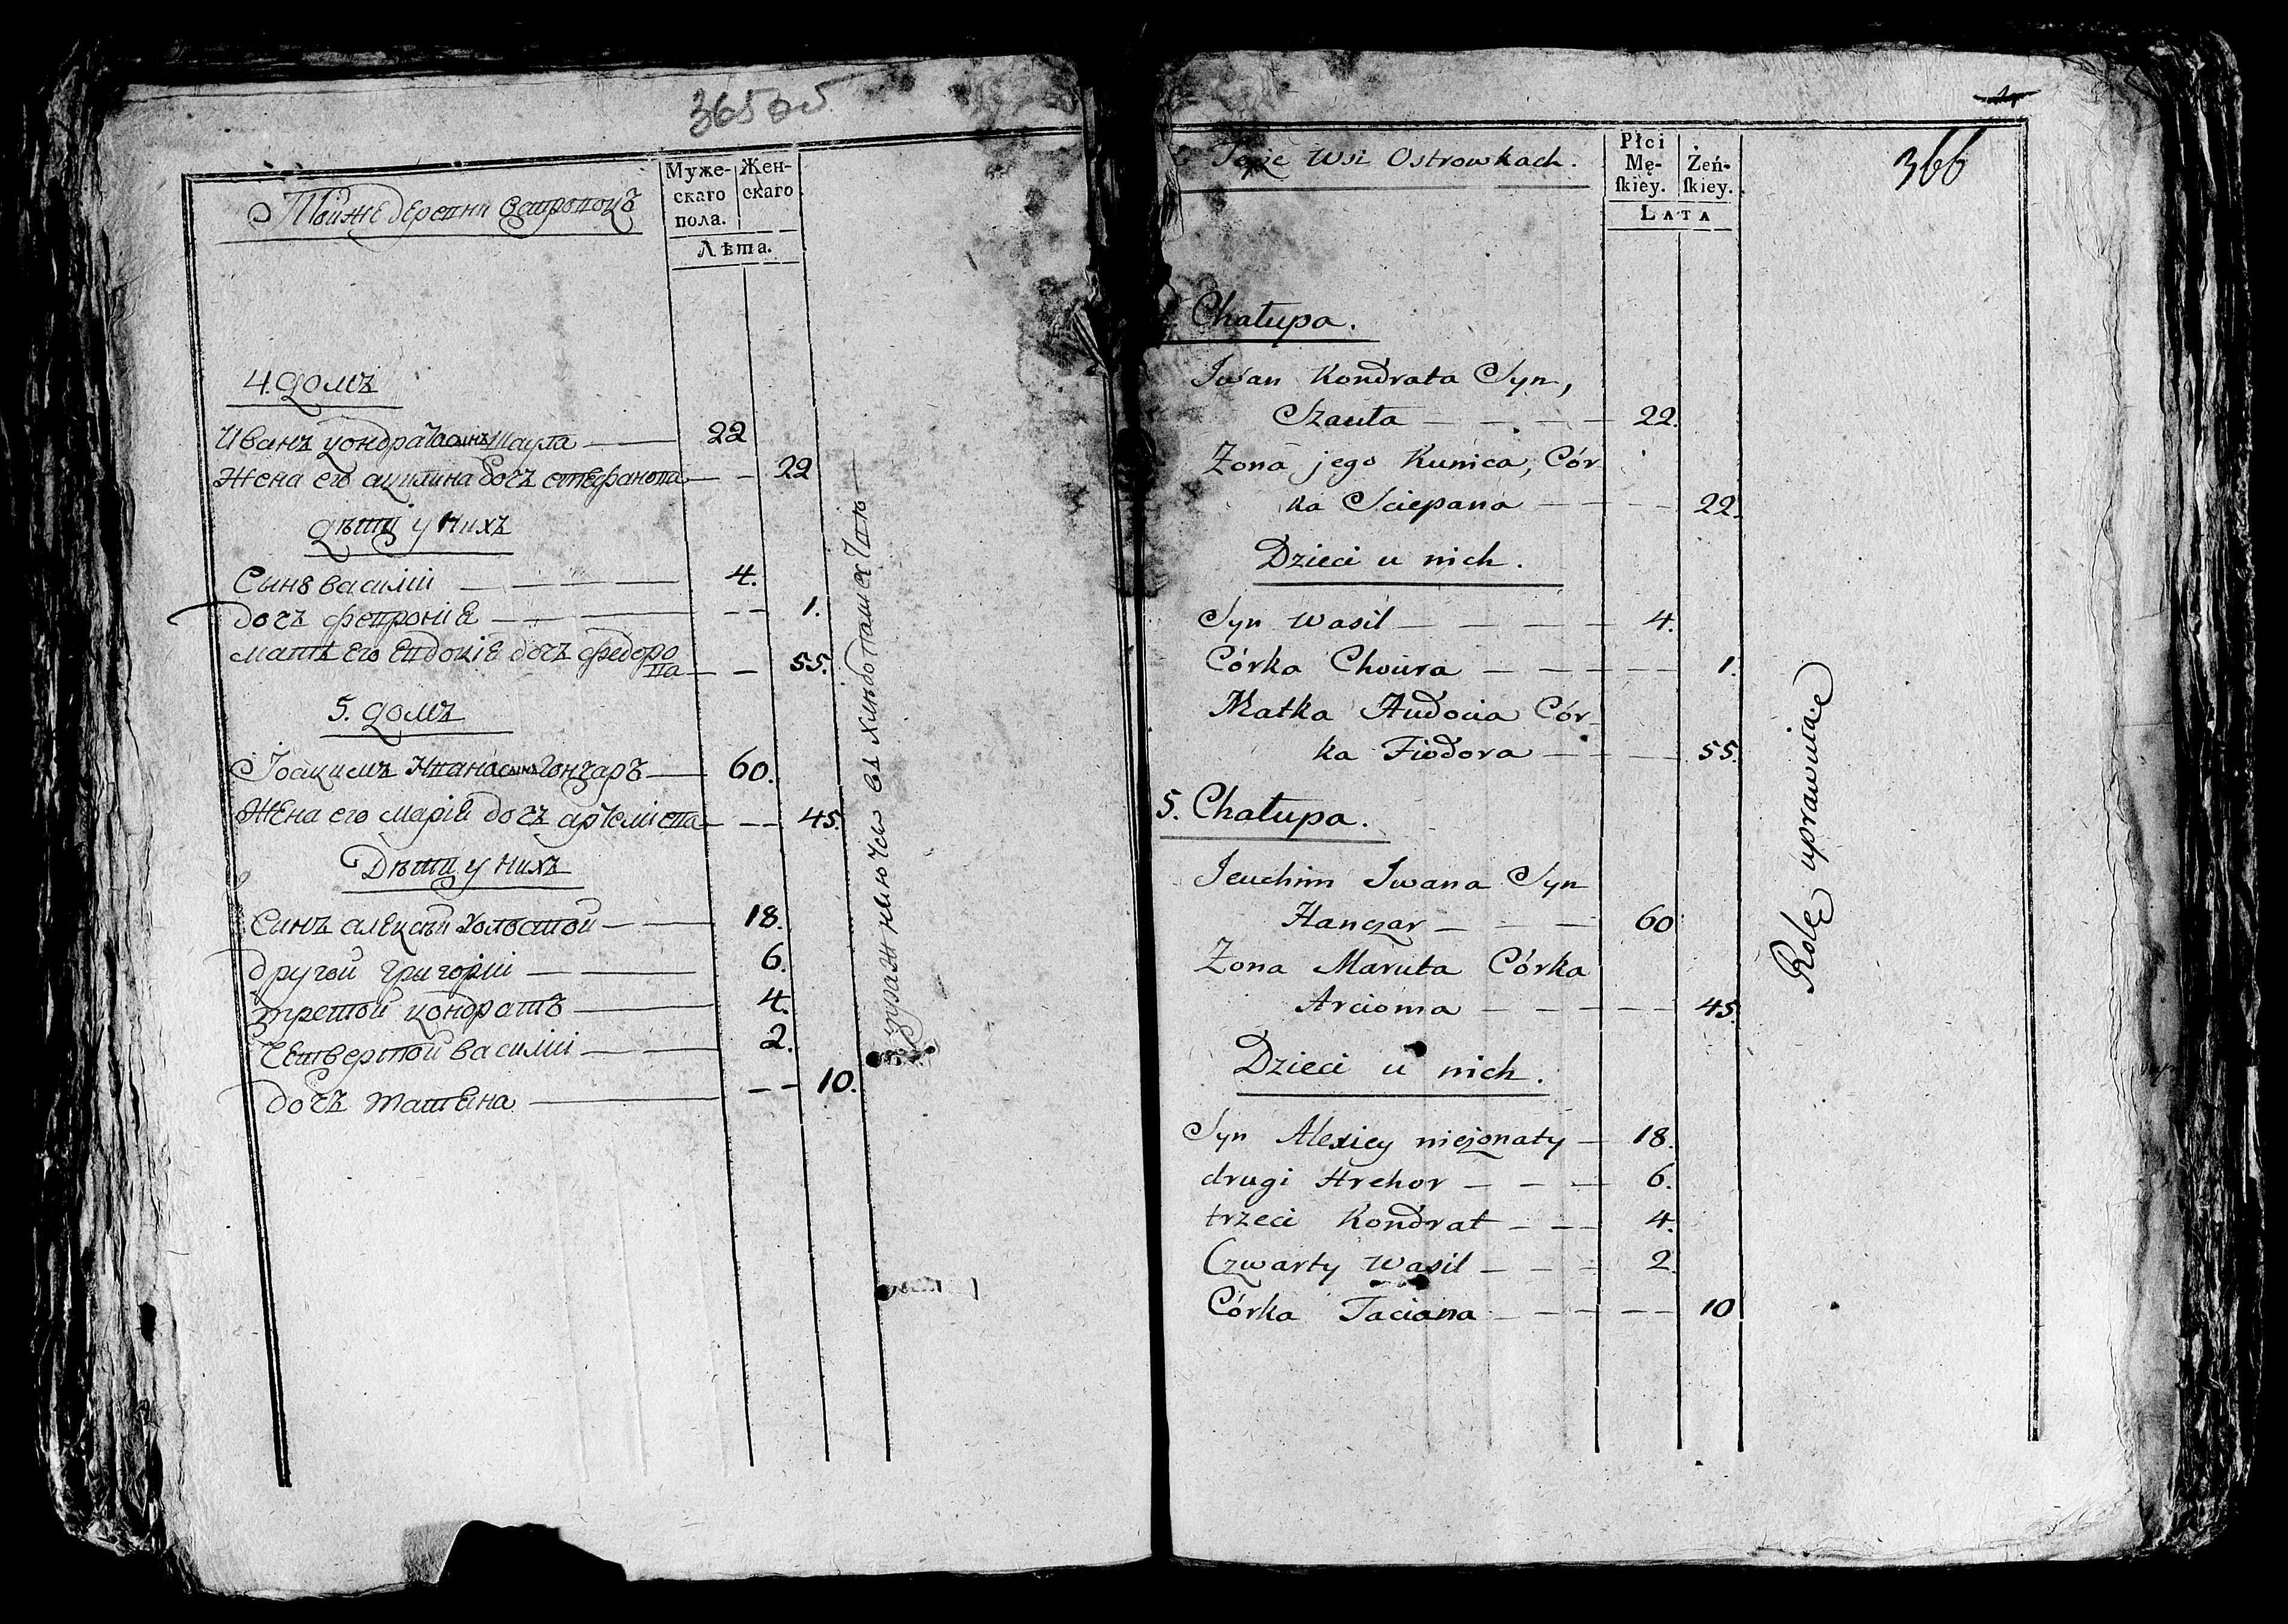 365 об
Тойже деревни Вастровокъ
Муже-
скаго
пола.
Жен-
скаго
Лѣта.
4. Домъ
Иванъ Кондрата сынъ Шаула — 22
Жена его Акилина дочъ Стефанова — — 22
Дѣти у нихъ
Сынъ Василій — 4.
дочъ Феврония — — 1.
мать его Евдокія дочъ Федоро
ва — — 55.
5. Домъ
Іоакимъ Ивана сынъ Гончаръ — 60.
Жена его Марія дочъ Артемиева — — 45.
Дѣти у нихъ
Синъ Алексѣй холостой — 18.
другой Григорій — 6.
третой Кондратъ — 4.
Четвертой Василій — 2.
дочъ Татяна — — 10.
въ хлѣбопашество
366
Teyże Wsi Ostrowkach.
Płci
Mę-
ſkiey.
Żeń-
ſkiey.
LATA
Chałupa.
Iwan Kondrata Syn,
Szauta — — — — 22.
Zona jego Kunica, Cór
ka Sciepana — — — — 22.
Dzieci u nich.
Syn Wasil — — — — 4.
Córka Choura — — — — 1.
Matka Audocia Cór-
ka Fiodora — — — 55.
5. Chałupa.
Jeuchim Iwana Syn
Hanczar — — — 60
Zona Maruta Córka
Arcioma — — — — 45.
Dzieci u nich.
Syn Alexiey nieżonaty — 18.
drugi Hrehor — — — 6.
trzeci Kondrat — — — 4.
Czwarty Wasil — — — 2.
Córka Taciana — — — — 10
Rolę uprawuiąc